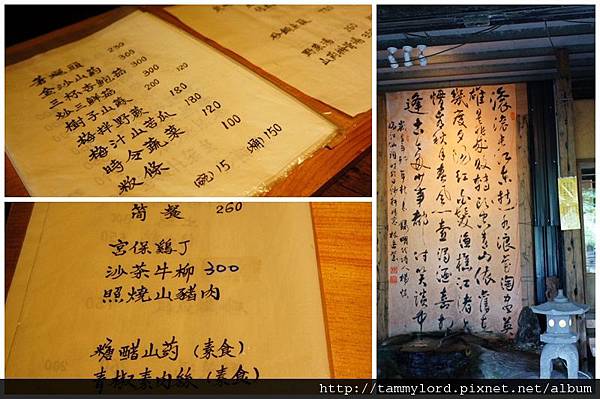 230
金沙山药 300
三杯杏鮑菇 300
炒三鮮菇
樹子山蘇 180
梅拌野蕨 130
梅汁山苦瓜 120
時令蔬菜 100
粄條 (碗)15 (鍋)150
260
宮保鷄丁
沙茶牛柳 300
照燒山豬肉
糖醋山药(素食)
青椒素肉絲(素食)
滾滾長江東逝水浪花淘盡英
雄是非成敗轉頭空青山依舊在
幾度夕陽紅白髮漁樵江渚上
慣看秋月春風一壺濁酒喜相
逢古今多少事都付笑談中
http://tammylord.pixnet.net/album